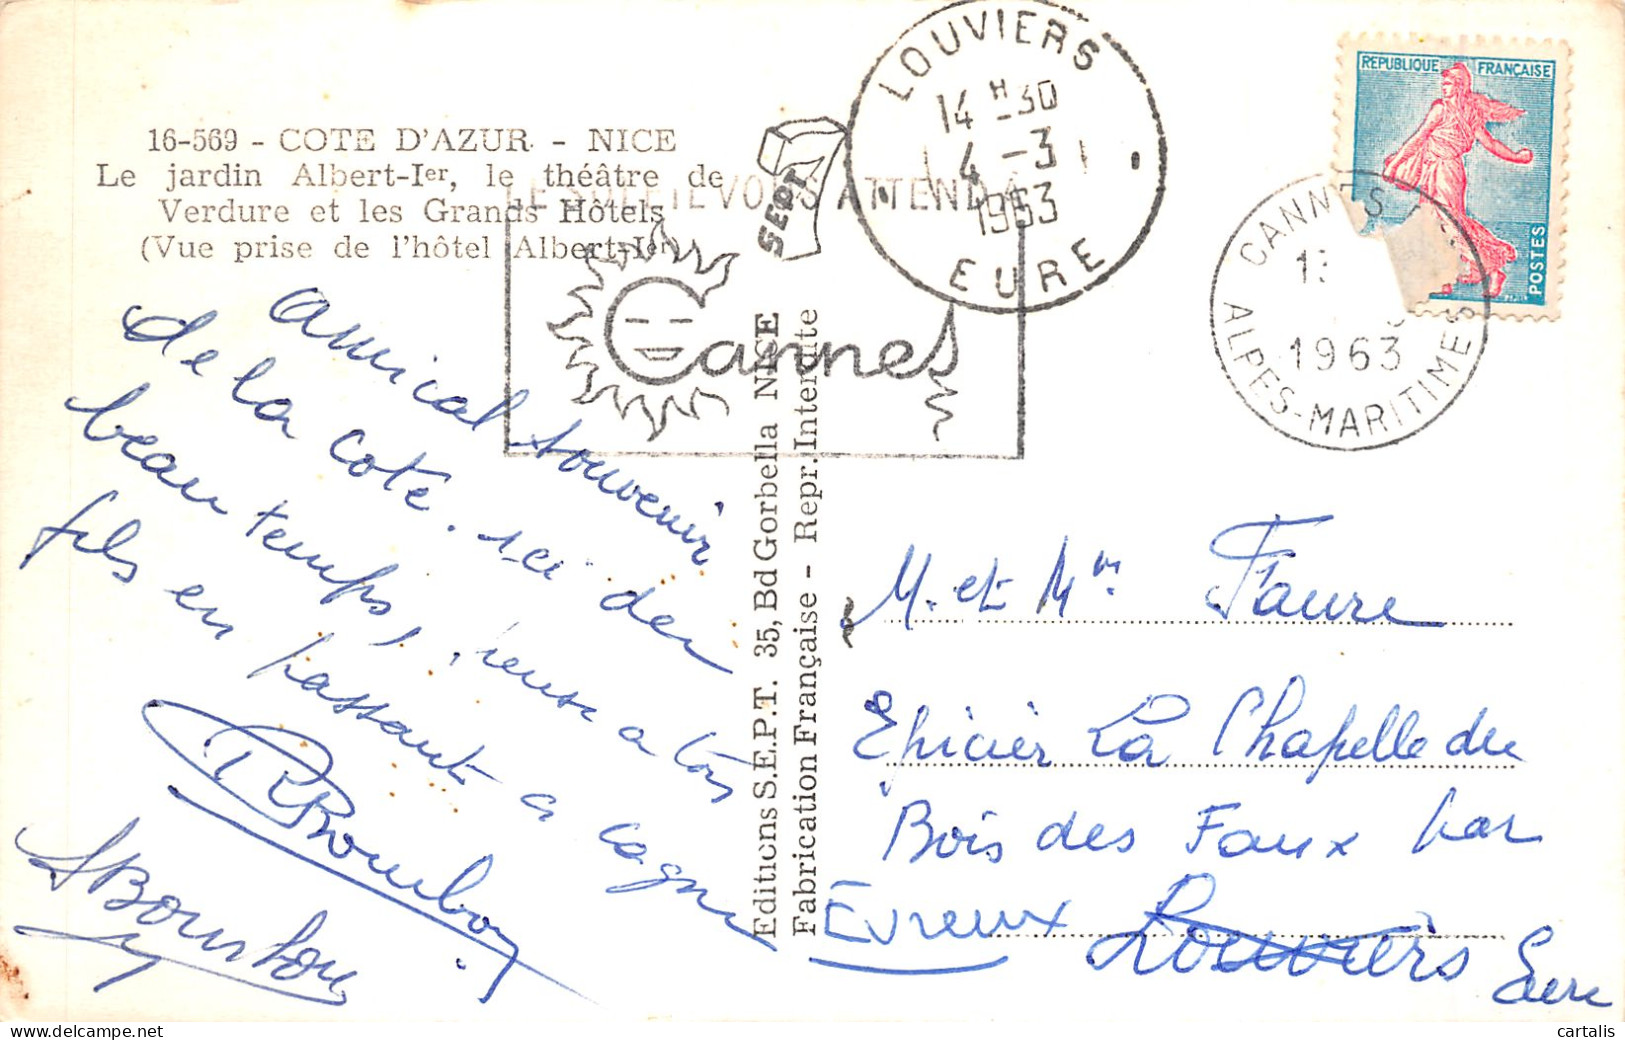 16-569 - COTE D'AZUR - NICE
Le jardin Albert-Ier, le théâtre de
Verdure et les Grands Hôtels
(Vue prise de l'hôtel Albert-Ier
LE SOLEIL VOUS ATTEND
SEPT
Cannes
LOUVIERS
14 H 30
4 - 3
1963
EURE
REPUBLIQUE FRANÇAISE
POSTES
CANNES
13
1963
ALPES-MARITIMES
amical souvenir
de la cote. ici du
beau temps,
fils en passant a cagnes
Editions S.E.P.T. 35, Bd Gorbella NICE
Fabrication Française - Repr. Interdite
M. et Mme Faure
Epicier La Chapelle du
Bois des Faux par
Evreux Louviers Eure
cartalis